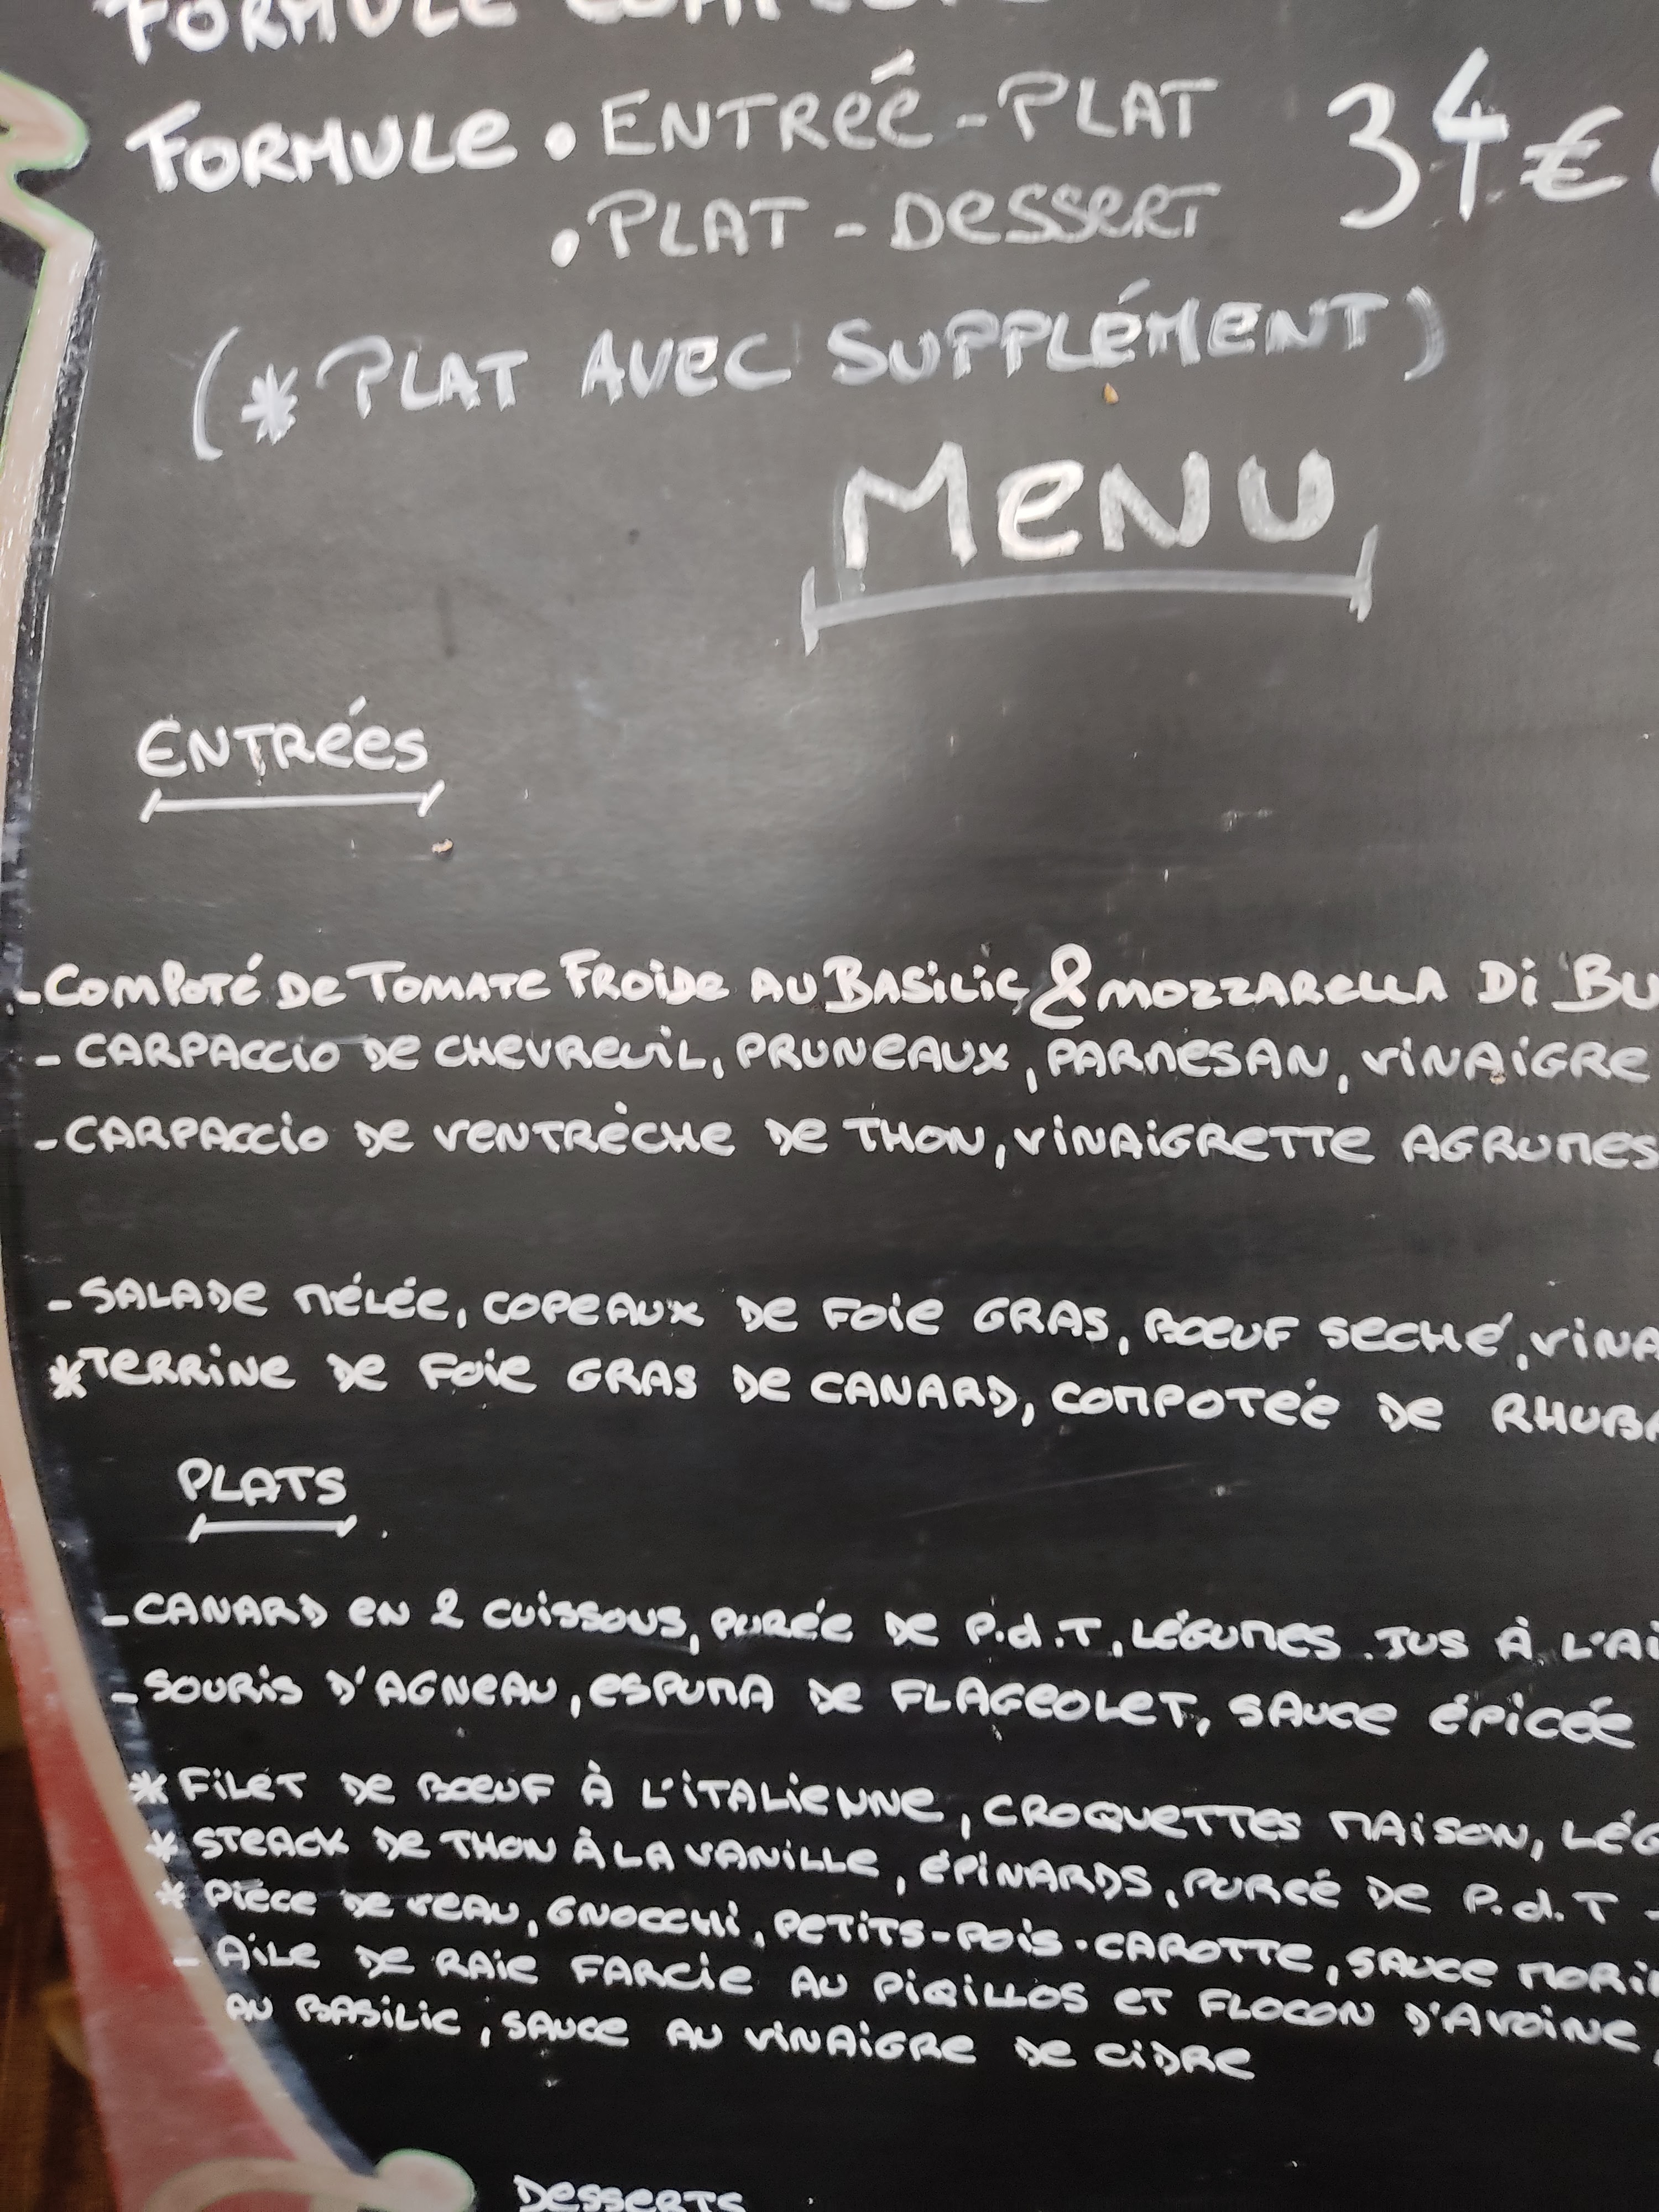 FORMULE
FORMULE • ENTRÉE - PLAT 34€
• PLAT - DESSERT
(* PLAT AVEC SUPPLÉMENT)
MENU
ENTRÉES
- COMPOTÉ DE TOMATE FROIDE AU BASILIC & MOZZARELLA DI BU
- CARPACCIO DE CHEVREUIL, PRUNEAUX, PARMESAN, VINAIGRE
- CARPACCIO DE VENTRÈCHE DE THON, VINAIGRETTE AGRUMES
- SALADE MÉLÉE, COPEAUX DE FOIE GRAS, BŒUF SECHÉ, VINA
* TERRINE DE FOIE GRAS DE CANARD, COMPOTÉE DE RHUBA
PLATS
- CANARD EN 2 CUISSONS, PURÉE DE P.d.T, LÉGUMES. JUS À L'AI
- SOURIS D'AGNEAU, ESPUMA DE FLAGEOLET, SAUCE ÉPICÉE
* FILET DE BŒUF À L'ITALIENNE, CROQUETTES MAISON, LÉG
* STEACK DE THON À LA VANILLE, ÉPINARDS, PURÉE DE P.d.T -
* PIÈCE DE VEAU, GNOCCHI, PETITS-POIS-CAROTTE, SAUCE MORI
- AILE DE RAIE FARCIE AU PIQILLOS ET FLOCON D'AVOINE,
AU BASILIC, SAUCE AU VINAIGRE DE CIDRE
DESSERTS